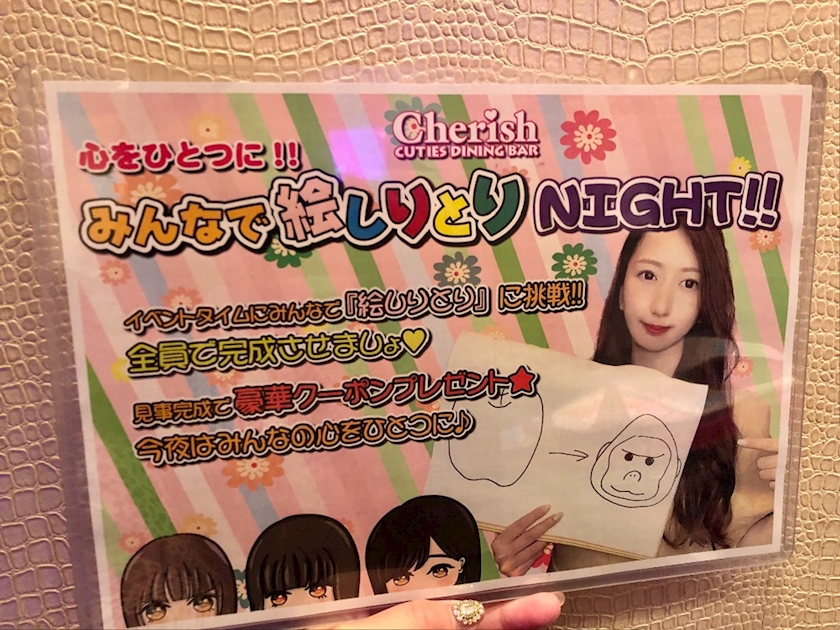 Cherish
CUTIES DINING BAR
心をひとつに!!
みんなで絵しりとりNIGHT!!
イベントタイムにみんなで『絵しりとり』に挑戦!!
全員で完成させましょ♥
見事完成で豪華クーポンプレゼント★
今夜はみんなの心をひとつに♪